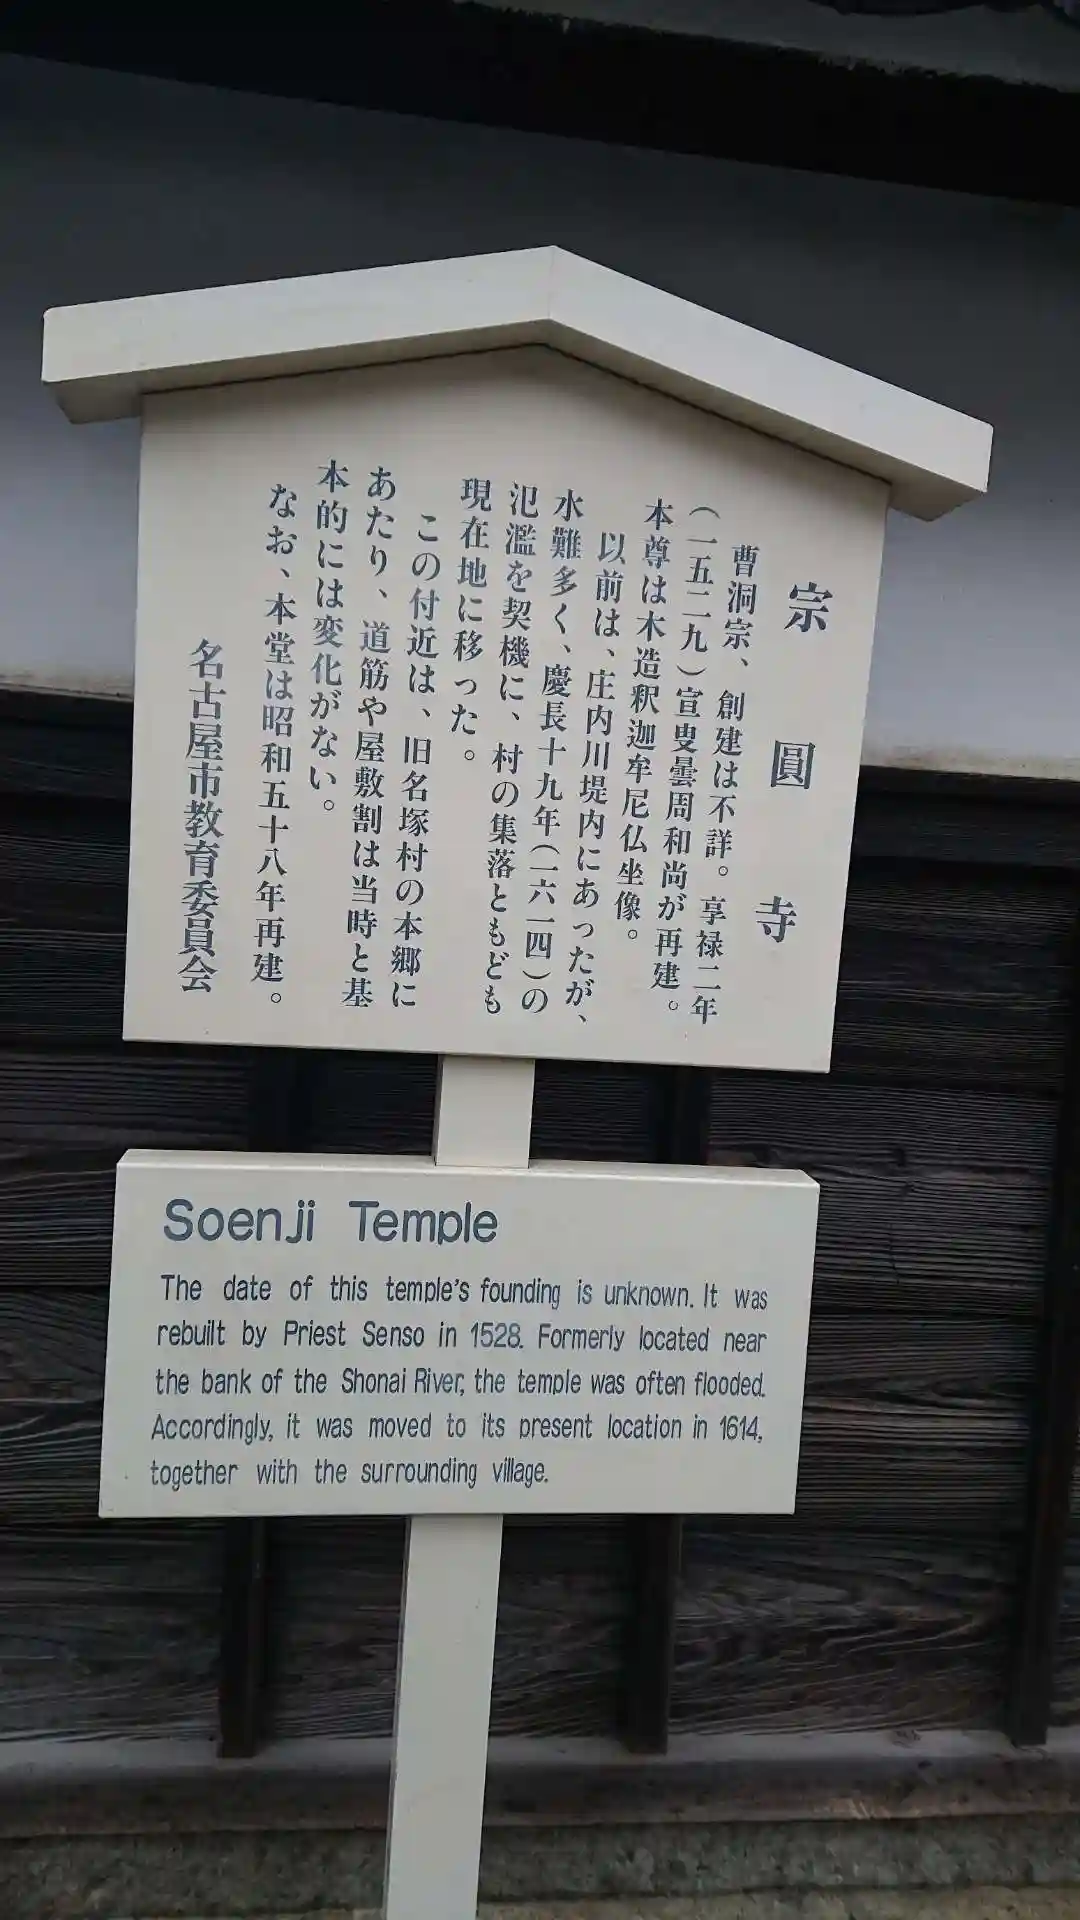 宗圓寺
曹洞宗、創建は不詳。享禄二年
(一五二九)宣叟曇周和尚が再建。
本尊は木造釈迦牟尼仏坐像。
以前は、庄内川堤内にあったが、
水難多く、慶長十九年(一六一四)の
氾濫を契機に、村の集落ともども
現在地に移った。
この付近は、旧名塚村の本郷に
あたり、道筋や屋敷割は当時と基
本的には変化がない。
なお、本堂は昭和五十八年再建。
名古屋市教育委員会
Soenji Temple
The date of this temple's founding is unknown. It was
rebuilt by Priest Senso in 1528. Formerly located near
the bank of the Shonai River, the temple was often flooded.
Accordingly, it was moved to its present location in 1614,
together with the surrounding village.